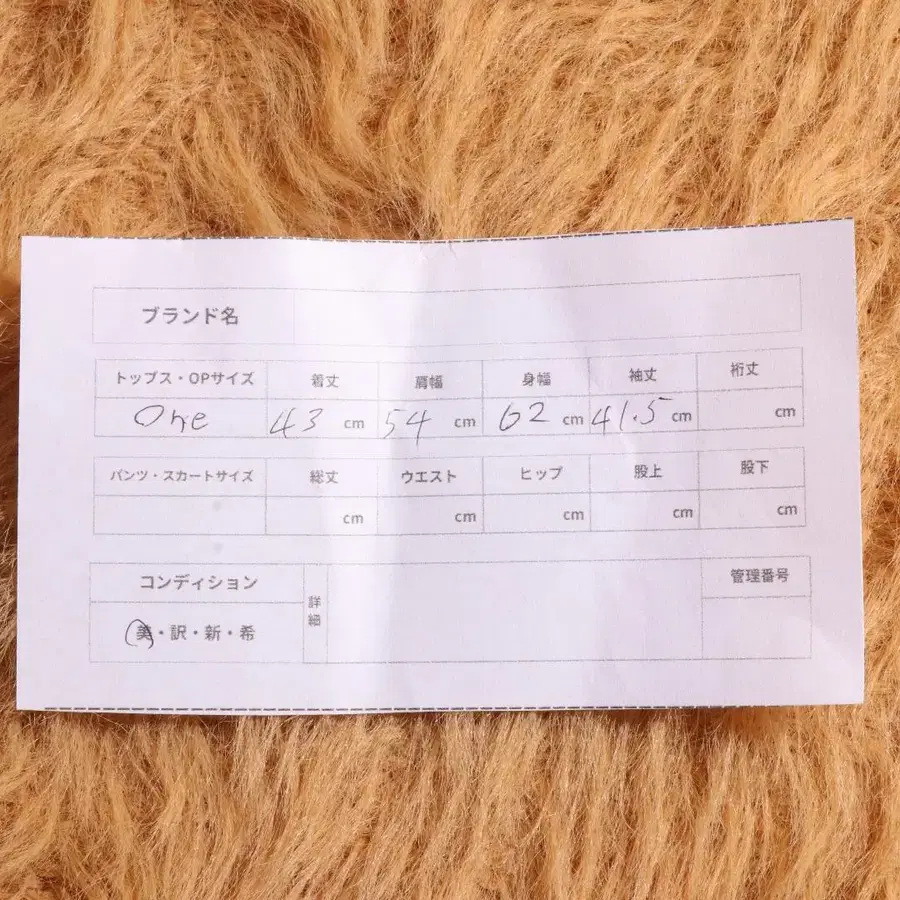 ブランド名
トップス・OPサイズ 着丈 肩幅 身幅 袖丈 裄丈
One 43 cm 54 cm 62 cm 41.5 cm cm
パンツ・スカートサイズ 総丈 ウエスト ヒップ 股上 股下
cm cm cm cm cm
コンディション 詳細 管理番号
美・訳・新・希